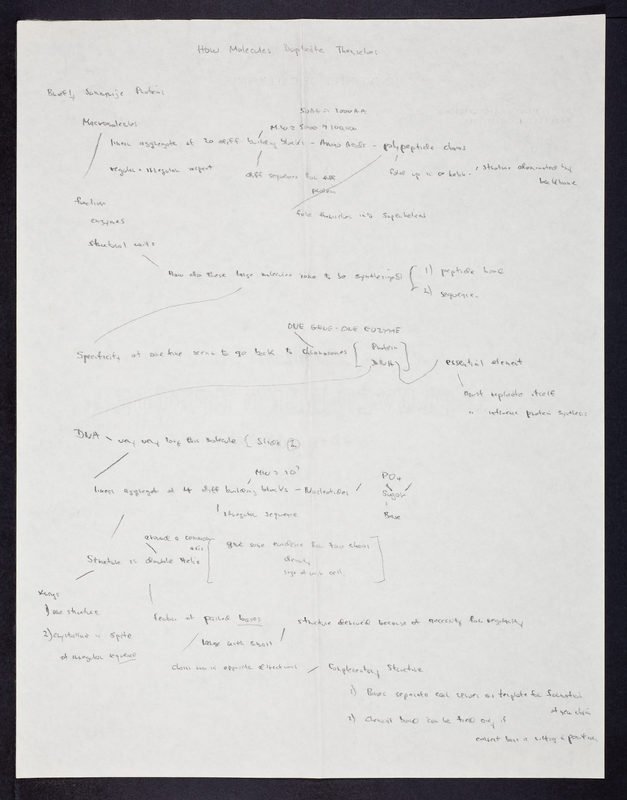 How Molecules Duplicate Themselves
Briefly Summarize Proteins
Macromolecules
MW = 5000 → 100,000
linear aggregate of 20 diff building blocks - Amino Acids - polypeptide chains
regular + irregular aspect
diff sequence for diff protein
fold up in α helix - structure determined by backbone
fold themselves into superhelices
function
enzymes
structural units
How do these large molecules come to be synthesized
1) peptide bond
2) sequence
ONE GENE - ONE ENZYME
Specificity at one time seems to go back to chromosomes
Protein
DNA
essential element
must replicate itself
" influence protein synthesis
DNA very very long thin molecule (Slide 2)
MW = 10⁷
linear aggregate of 4 diff building blocks - Nucleotides
PO4
Sugar
Base
irregular sequence
around a common axis
Structure is double Helix
give some evidence for two chains
density
size of unit cell
X-rays
1) one structure
2) crystalline in spite of irregular sequence
feature of paired bases
structure derived because of necessity for regularity
large with small
chains run in opposite directions
Complementary Structure
1) Bases separate each serves as template for formation of new chain
2) chemical bond can be tied only if
correct base is sitting in position